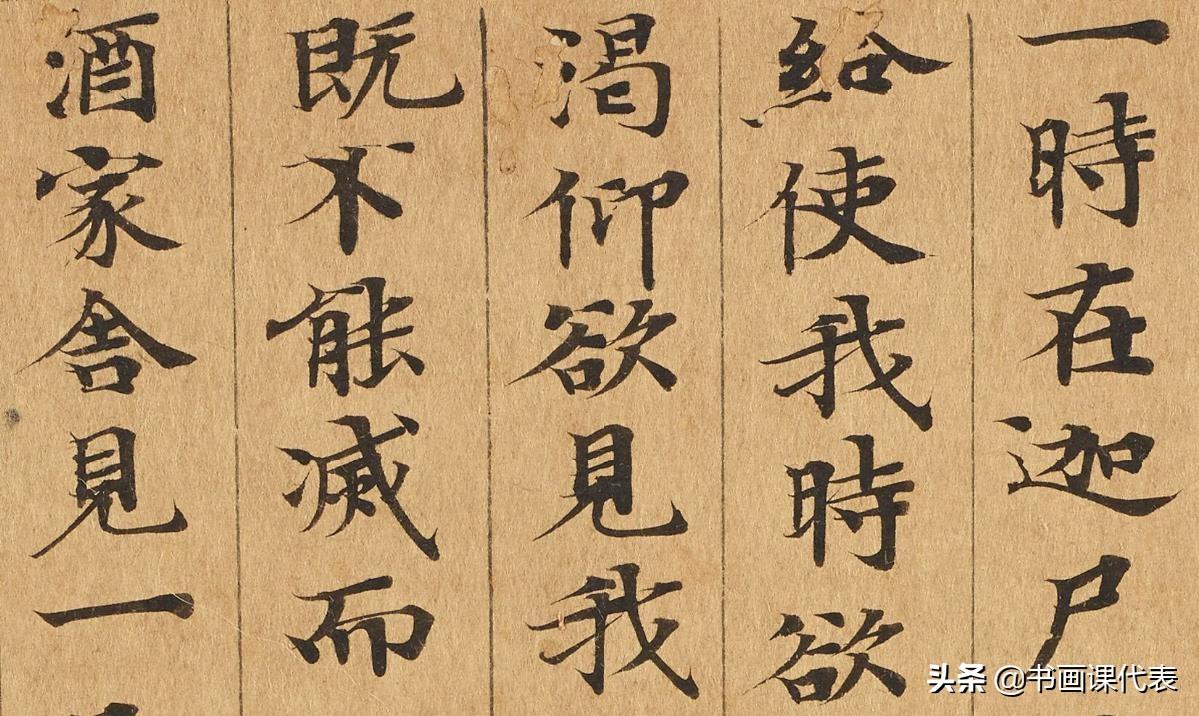 一時在迦尸
給使我時欲
渴仰欲見我
既不能滅而
酒家舍見一
头条 @书画课代表